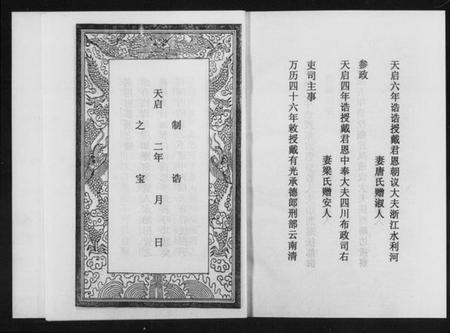 天启六年诰诰授戴君恩朝议大夫浙江水利河
妻唐氏赠淑人
参政
天启四年诰授戴君恩中奉大夫四川布政司右
妻梁氏赠安人
吏司主事
万历四十六年敕授戴有光承德郎刑部云南清
制诰
天启二年月日
之宝